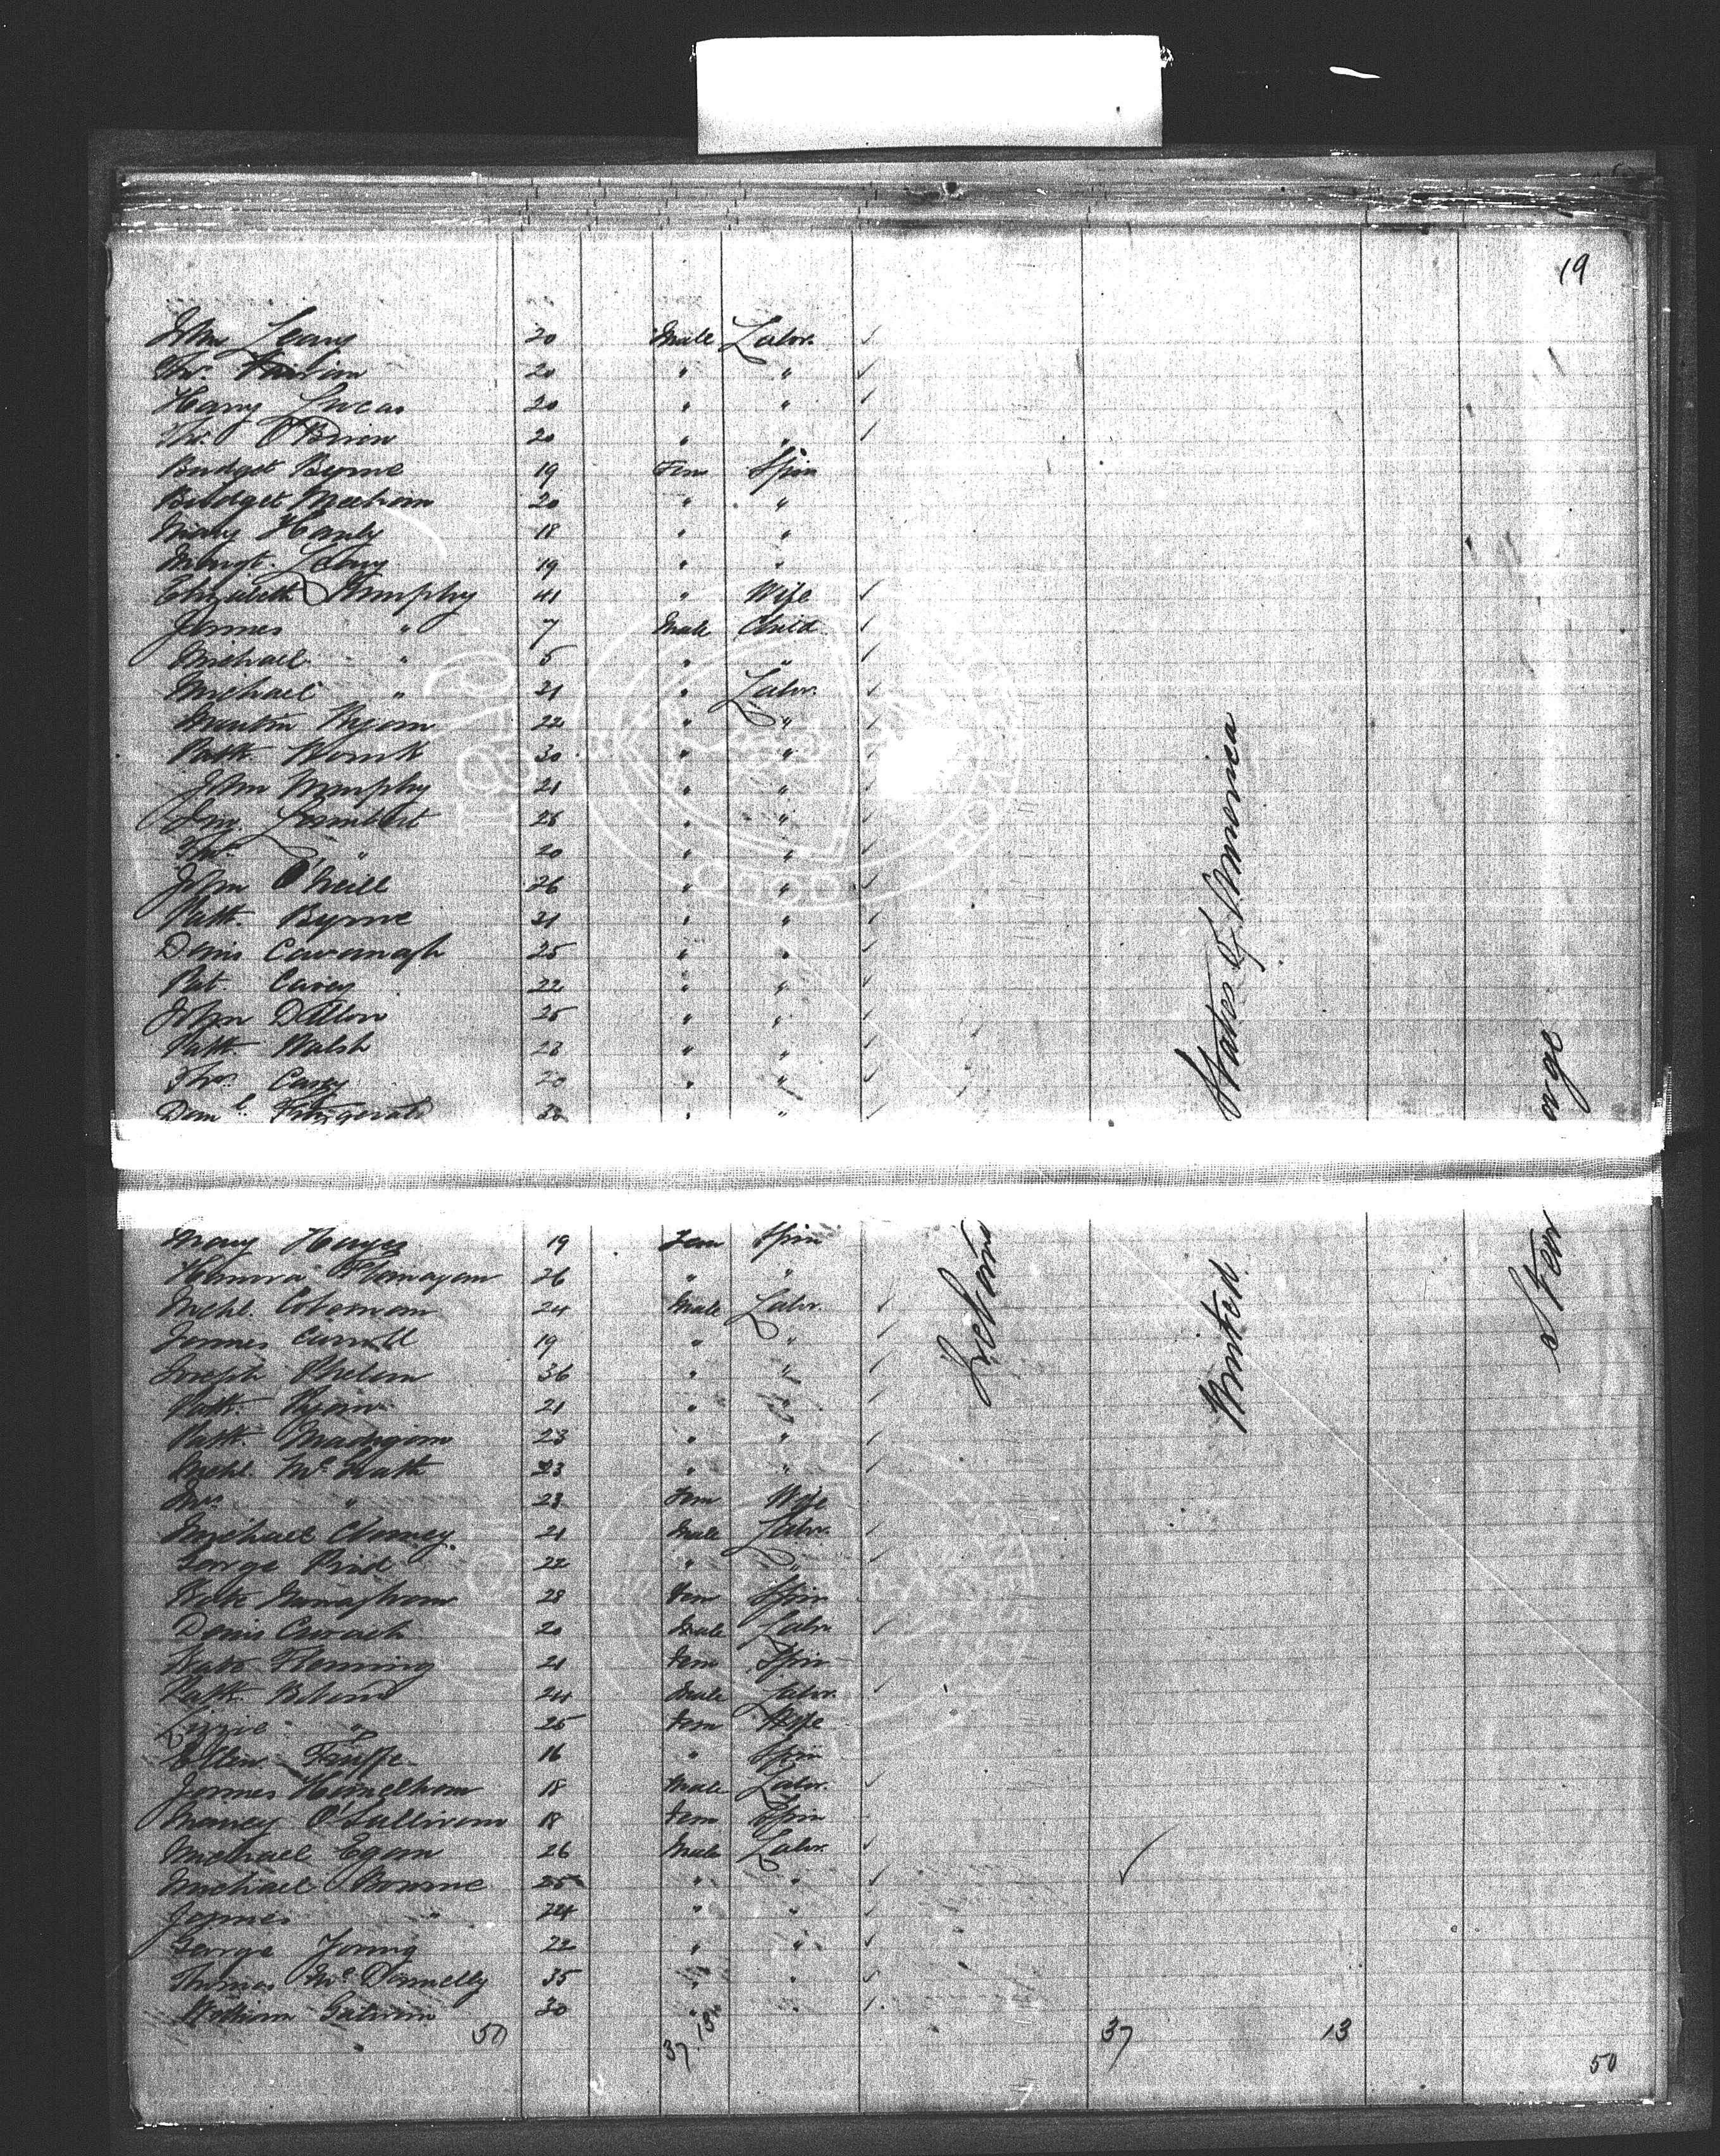 19
John Leary 20 Male Labr.
Thos. 20 " "
Harry Lucas 20 " "
Thos. O'Brien 20 " "
Bridget Byrne 19 Fem Spin
Bridget Meehan 20 " "
Mary Hanly 18 " "
Margt. Leary 19 " "
Elizabeth Murphy 41 " Wife
James " 7 Male Child
Michael " 5 " "
Michael " 21 " Labr.
Martin Ryan 22 " "
Patk. 30 " "
John Murphy 21 " "
Jas. Lambert 28 " "
Thos. " 20 " "
John O'Neill 26 " "
Patk. Byrne 21 " "
Denis Cavanagh 25 " "
Pat. Carey 22 " "
John Dillon 25 " "
Patk. Walsh 23 " "
Thos. Casey 20 " "
Danl. Fitzgerald " "
Mary Hayes 19 Fem Spin
Hanora Flanagan 26 " "
Michl. Coleman 24 Male Labr.
James Carroll 19 " "
Joseph Phelan 36 " "
Patk. Ryan 21 " "
Patk. Madigan 23 " "
Michl. McGrath 23 " "
Mrs. " 23 Fem Wife
Michael Chaney 21 Male Labr.
George 22 " "
Kate Monaghan 28 Fem Spin
Denis 20 Male Labr.
Kate Fleming 21 Fem Spin
Patk. 24 Male Labr.
Lizzie " 25 Fem Wife
Ellen 16 " Spin
James 18 Male Labr.
Nancy O'Sullivan 18 Fem Spin
Michael Egan 26 Male Labr.
Michael Bourne 25 " "
James " 24 " "
George Young 22 " "
Thomas McDonnelly 35 " "
William 30 " "
50 37 13 37 13
50
Ireland
United States of America
Steerage